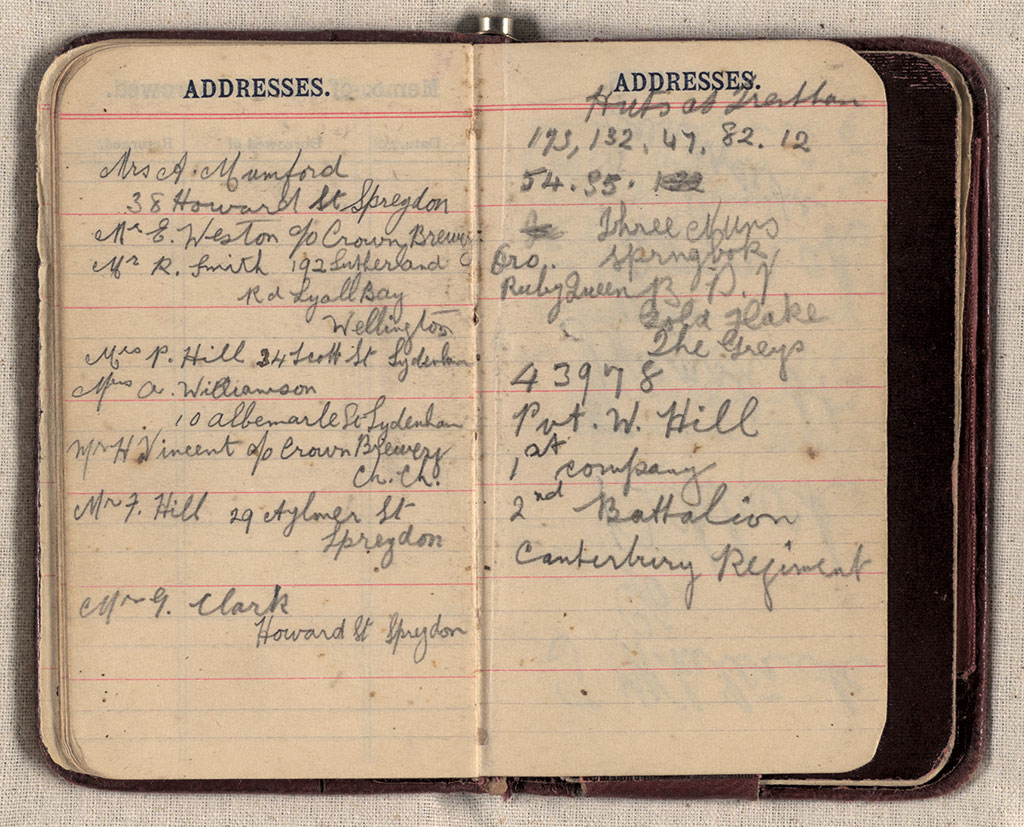 ADDRESSES.
Mrs A. Mumford
38 Howard St Spreydon
Mr E. Weston c/o Crown Brewery
Mr R. Smith 192 Sutherland
Rd Lyall Bay
Wellington
Mrs P. Hill 24 Scott St Sydenham
Mrs A. Williamson
10 Albemarle St Sydenham
Mr H Vincent c/o Crown Brewery
Ch. Ch.
Mr F. Hill 29 Aylmer St
Spreydon
Mr G. Clark
Howard St Spreydon
ADDRESSES.
Huts at
193, 132. 47. 82. 12
54. 35.
Three Nuns
Oro. Springbok
Ruby Queen B D. V
Gold Flake
The Greys
43978
Pvt. W. Hill
1st company
2nd Battalion
Canterbury Regiment